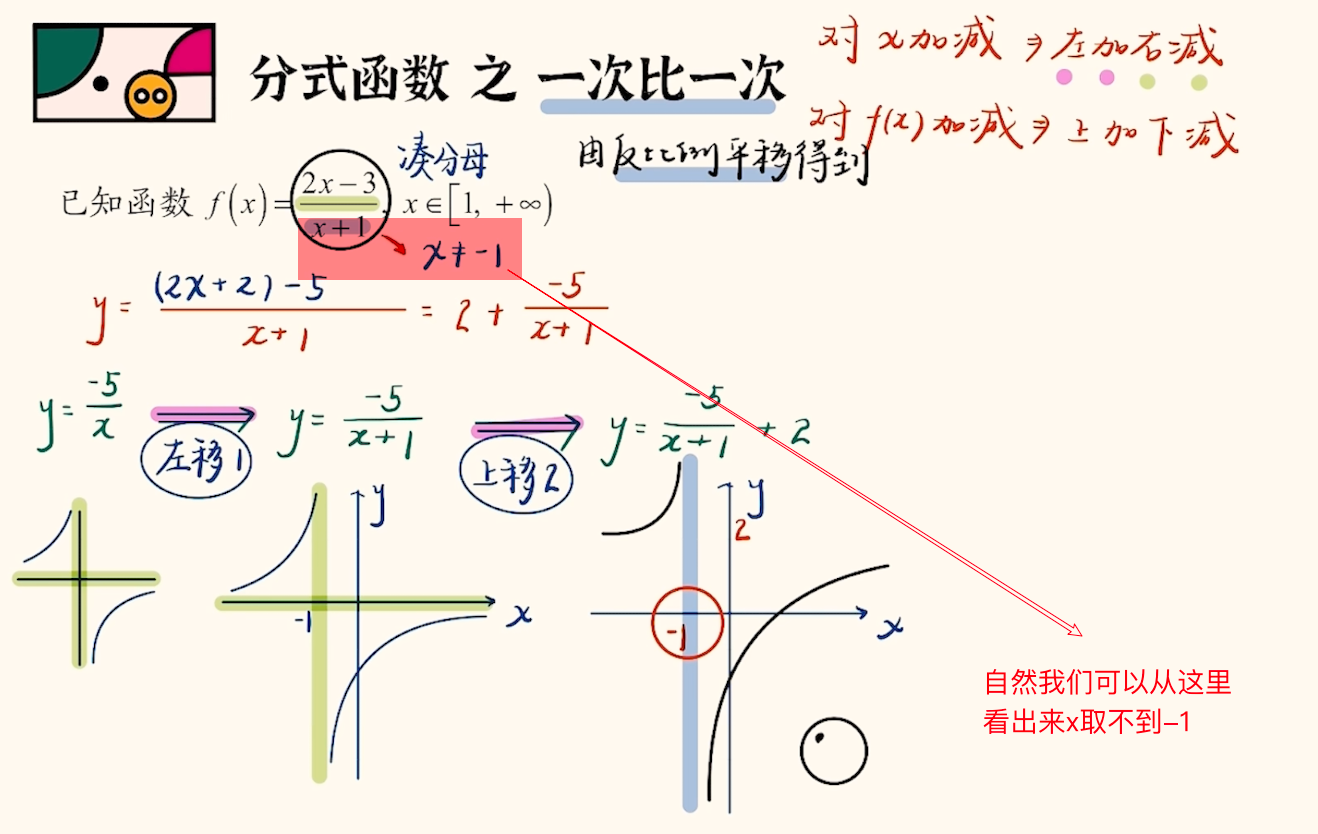 分式函数 之 一次比一次
对 x加减 ⇒ 左加右减
对 f(x) 加减 ⇒ 上加下减
凑分母
由反比例平移得到
已知函数 f(x)=\frac{2x-3}{x+1}, x∈[1, +∞)
x≠-1
y=\frac{(2x+2)-5}{x+1}=2+\frac{-5}{x+1}
y=\frac{-5}{x} → y=\frac{-5}{x+1} → y=\frac{-5}{x+1}+2
左移1
上移2
y
y
2
-1
x
-1
x
自然我们可以从这里
看出来x取不到-1